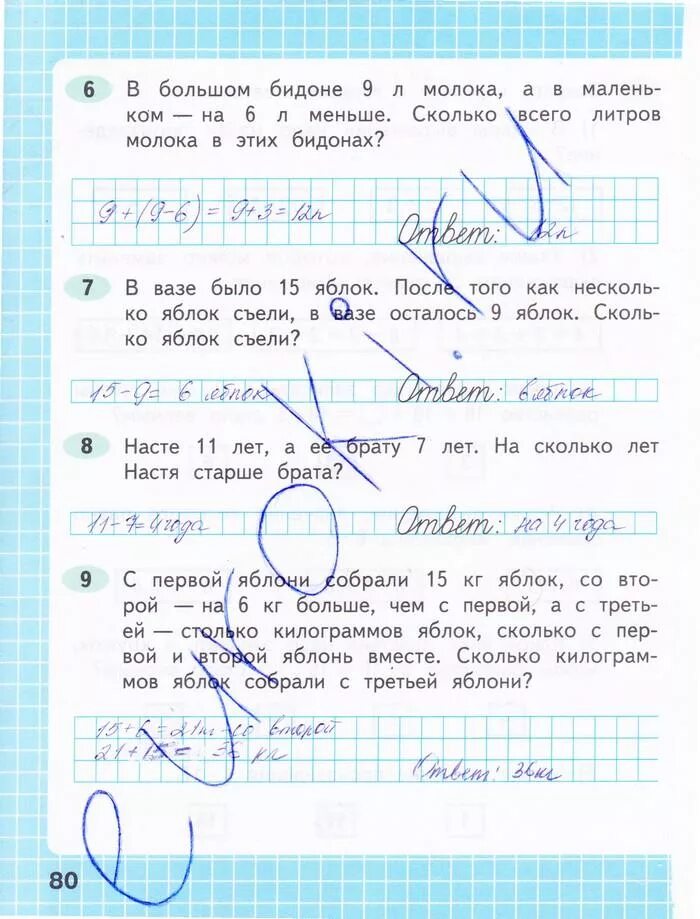 6 В большом бидоне 9 л молока, а в малень-
ком — на 6 л меньше. Сколько всего литров
молока в этих бидонах?
9+(9-6) = 9+3=12л
Ответ: 12л
7 В вазе было 15 яблок. После того как несколь-
ко яблок съели, в вазе осталось 9 яблок. Сколь-
ко яблок съели?
15-9= 6 яблок Ответ: 6 яблок
8 Насте 11 лет, а её брату 7 лет. На сколько лет
Настя старше брата?
11-7=4года Ответ: на 4 года
9 С первой яблони собрали 15 кг яблок, со вто-
рой — на 6 кг больше, чем с первой, а с треть-
ей — столько килограммов яблок, сколько с пер-
вой и второй яблонь вместе. Сколько килограм-
мов яблок собрали с третьей яблони?
15+6=21кг-со второй
21+15= 36 кг
Ответ: 36кг
80